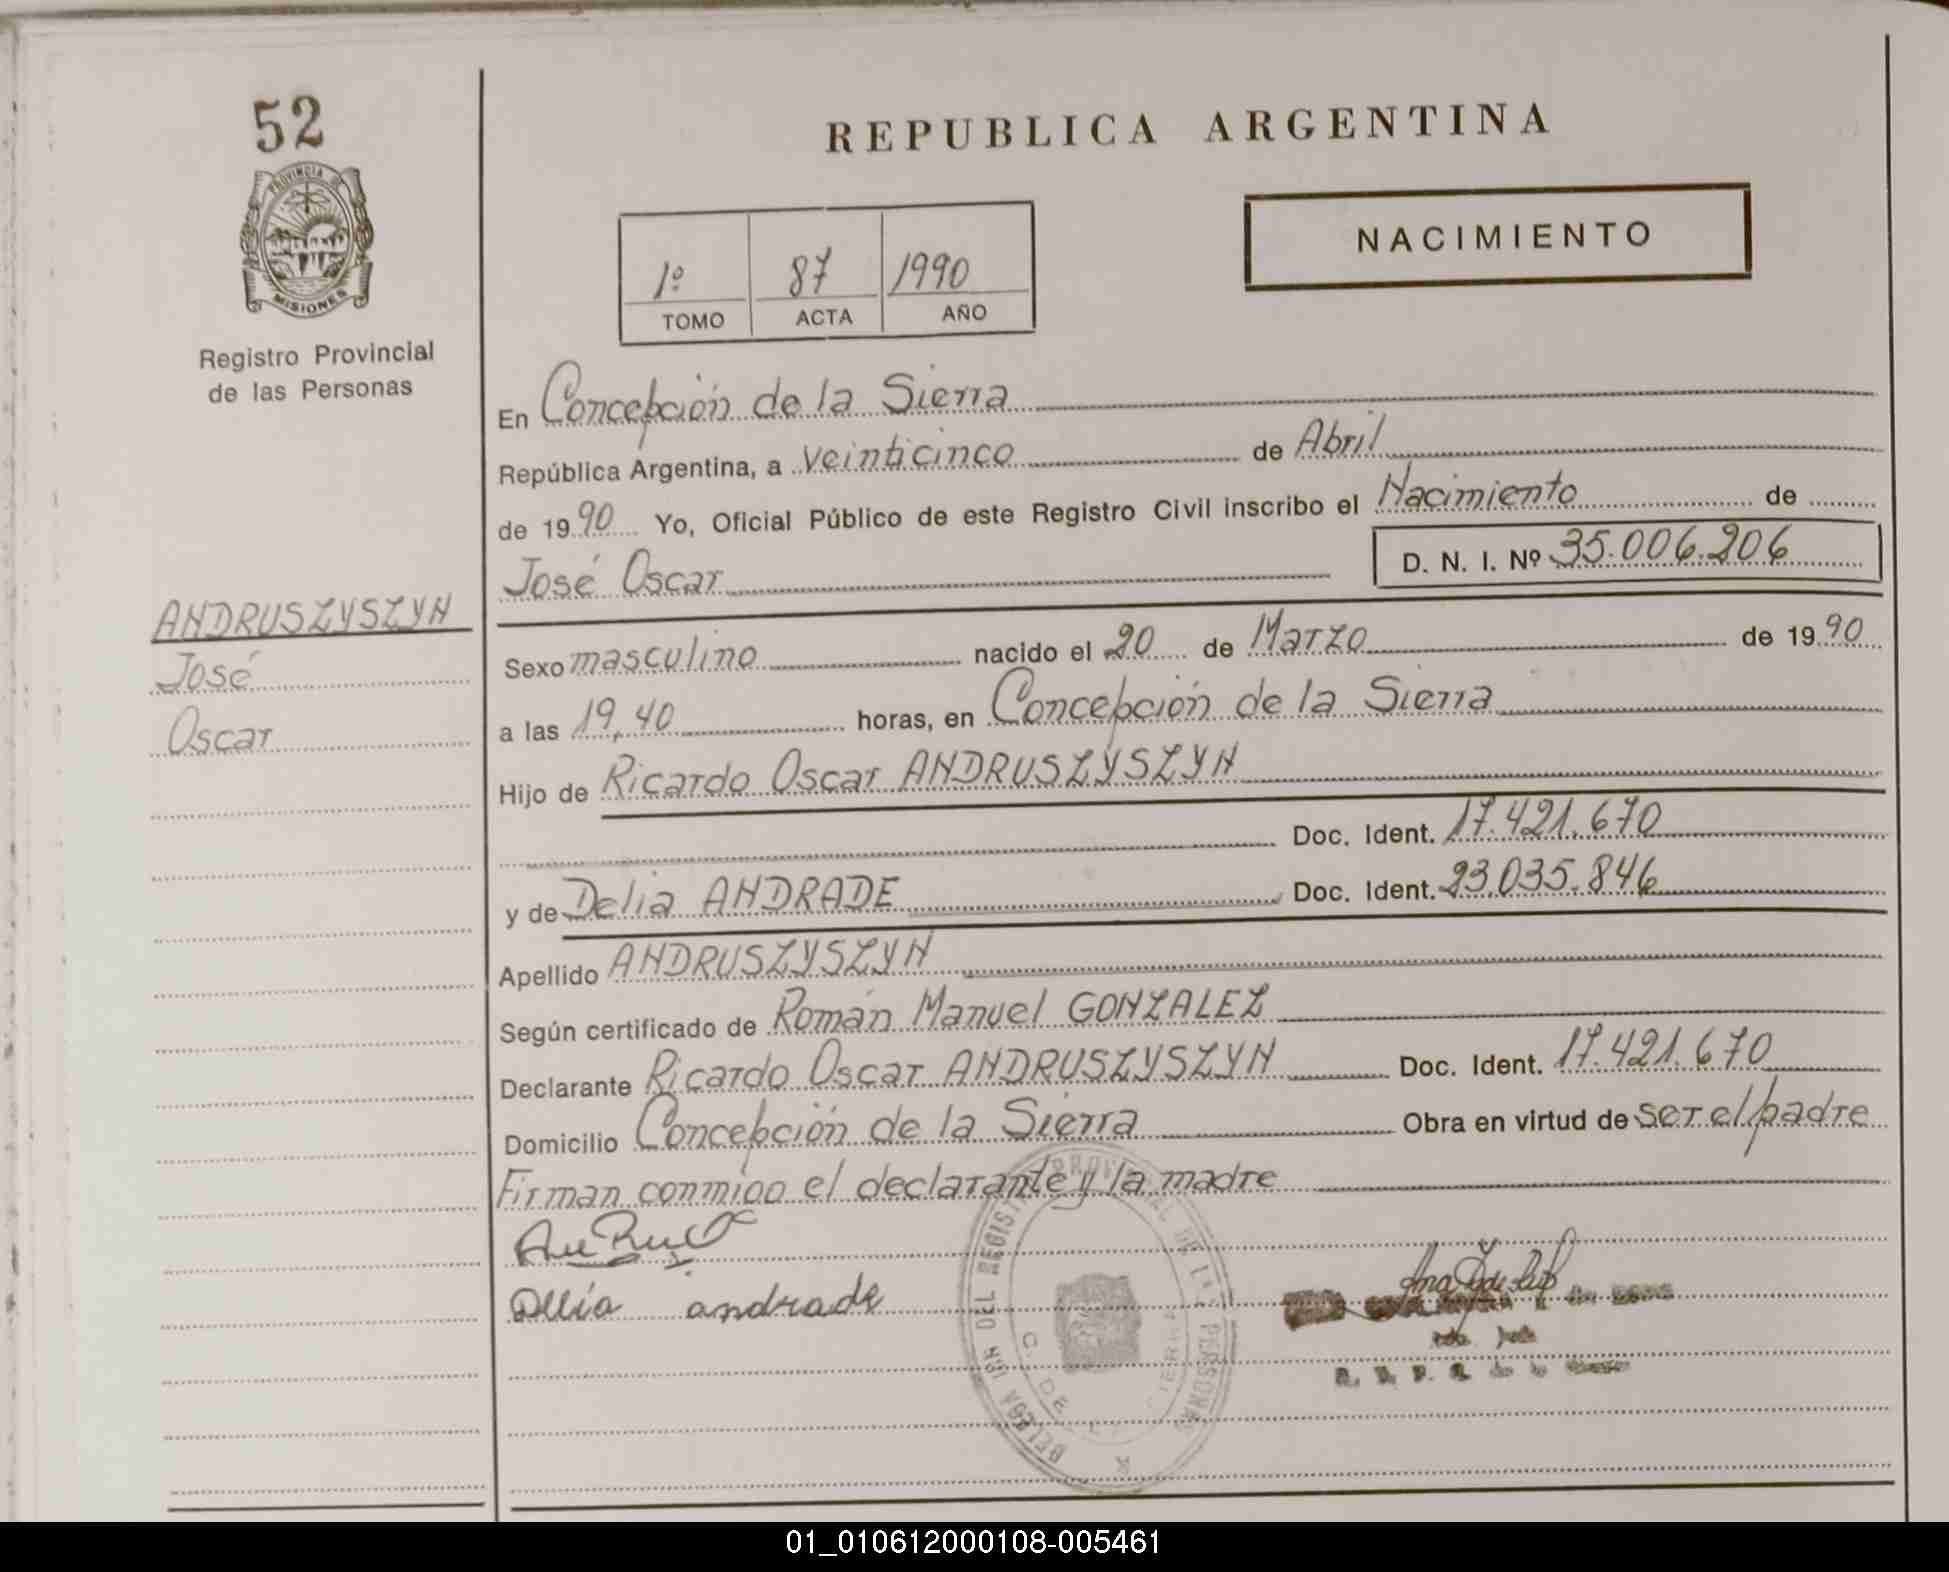 52
PROVINCIA DE
MISIONES
Registro Provincial
de las Personas
ANDRUSZYSZYN
José
Oscar
REPUBLICA ARGENTINA
NACIMIENTO
1º 87 1990
TOMO ACTA AÑO
En Concepción de la Sierra
República Argentina, a veinticinco de Abril
de 1990 Yo, Oficial Público de este Registro Civil inscribo el Nacimiento de
José Oscar D. N. I. Nº 35.006.206
Sexo masculino nacido el 20 de Marzo de 1990
a las 19,40 horas, en Concepción de la Sierra
Hijo de Ricardo Oscar ANDRUSZYSZYN
Doc. Ident. 17.421.670
y de Delia ANDRADE Doc. Ident. 23.035.846
Apellido ANDRUSZYSZYN
Según certificado de Román Manuel GONZALEZ
Declarante Ricardo Oscar ANDRUSZYSZYN Doc. Ident. 17.421.670
Domicilio Concepción de la Sierra Obra en virtud de ser el padre
Firman conmigo el declarante y la madre
Delia andrade
01_010612000108-005461